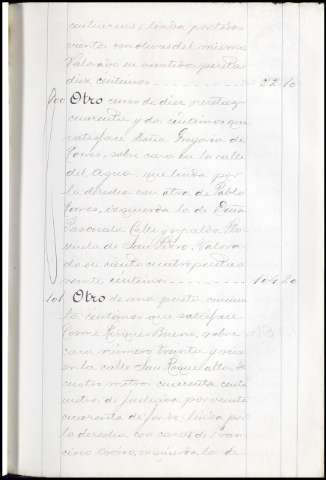 centiareas, linda por todos
vientos con olivas del mismo
Valorado en veintidos pesetas
diez centimos 22 10
100 Otro censo de diez pesetas
cuarenta y dos centimos que
satisface Doña Gregoria de
Torres, sobre casa en la calle
del Agua, que linda por
la derecha con otra de Pablo
Torres, izquierda la de Doña
Pascuala Calle y espalda
de San Pedro. Valora-
do en ciento cuatro pesetas
veinte centimos 104 20
101 Otro de una peseta cincuen-
ta centimos que satisface
Bueno, sobre
casa número treinta y seis
en la calle San Roque alta, de
cuatro metros cuarenta centi-
metros de por veinte
cuarenta de fondo, linda por
la derecha con casa de Fran-
cisco izquierda la de